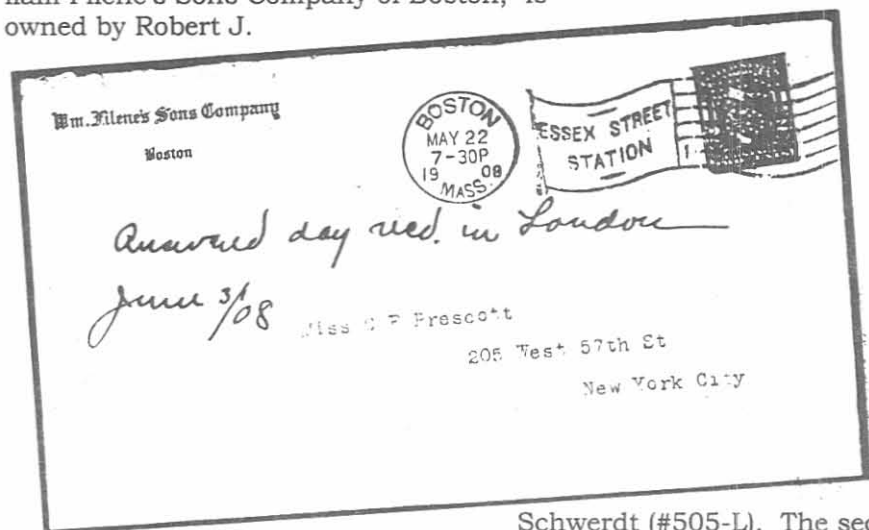 liam Filene's Sons Company of Boston," is
owned by Robert J.
Wm. Filene's Sons Company
Boston
BOSTON
MAY 22
7-30P
19 08
MASS.
ESSEX STREET
STATION
1
Answered day recd. in London
June 3/08
Miss C F Prescott
205 West 57th St
New York City
Schwerdt (#505-L). The sec